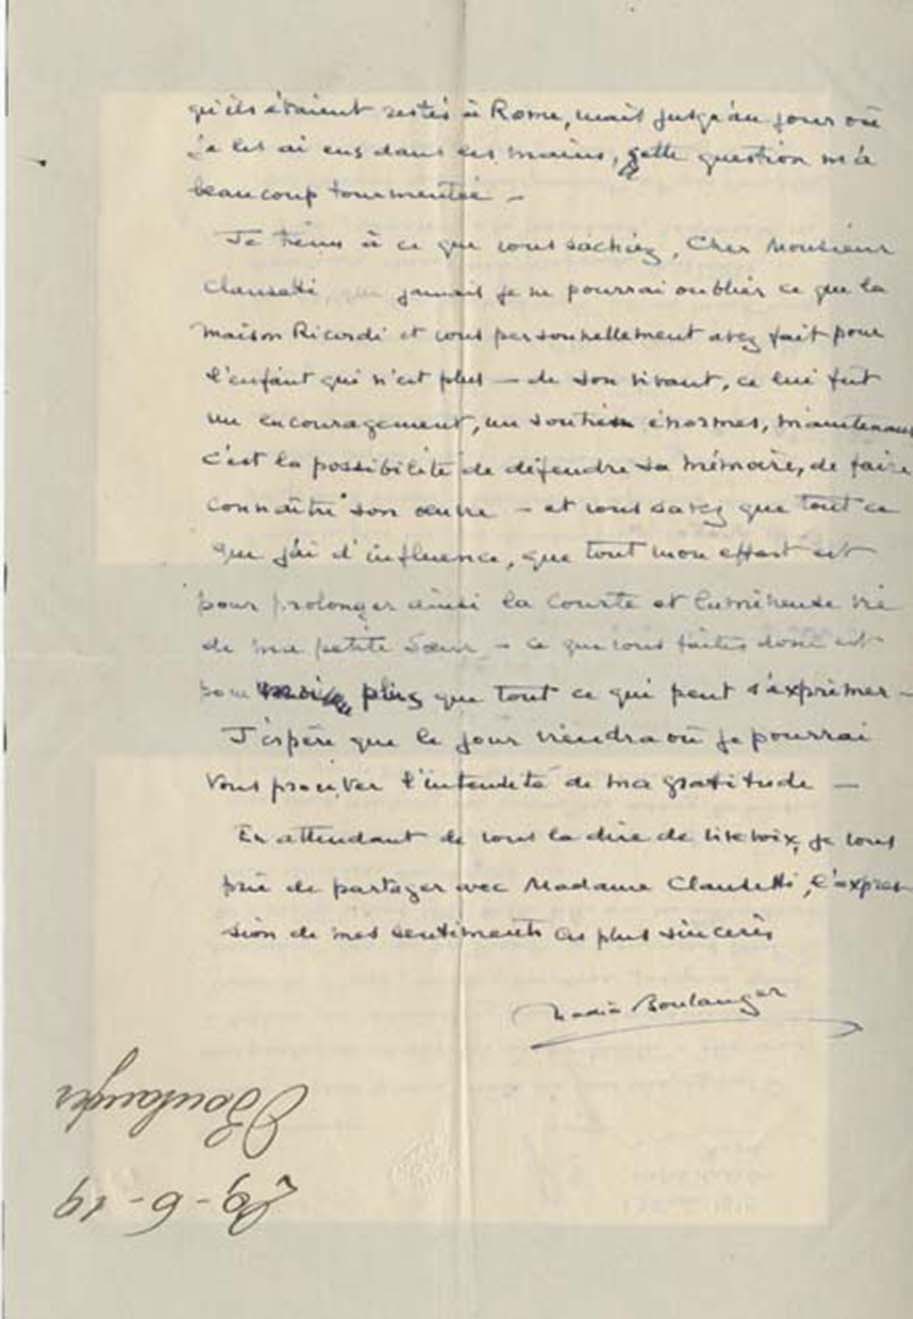 qu'ils étaient restés à Rome, mais jusqu'au jour où
je les ai eus dans les mains, cette question m'a
beaucoup tourmentée –
Je tiens à ce que vous sachiez, Cher Monsieur
Clausetti, que jamais je ne pourrai oublier ce que la
maison Ricordi et vous personnellement avez fait pour
l'enfant qui n'est plus – de son vivant, ce lui fut
un encouragement, un soutien énormes, maintenant
c'est la possibilité de défendre sa mémoire, de faire
connaître son œuvre – et vous savez que tout ce
que j'ai d'influence, que tout mon effort est
pour prolonger ainsi la courte et lumineuse vie
de ma petite Sœur – ce que vous faites donc est
pour moi plus que tout ce qui peut s'exprimer –
J'espère que le jour viendra où je pourrai
vous prouver l'intensité de ma gratitude –
En attendant de vous la dire de vive voix, je vous
prie de partager avec Madame Clausetti, l'expres-
sion de mes sentiments les plus sincères
Nadia Boulanger
29-6-19
Boulanger